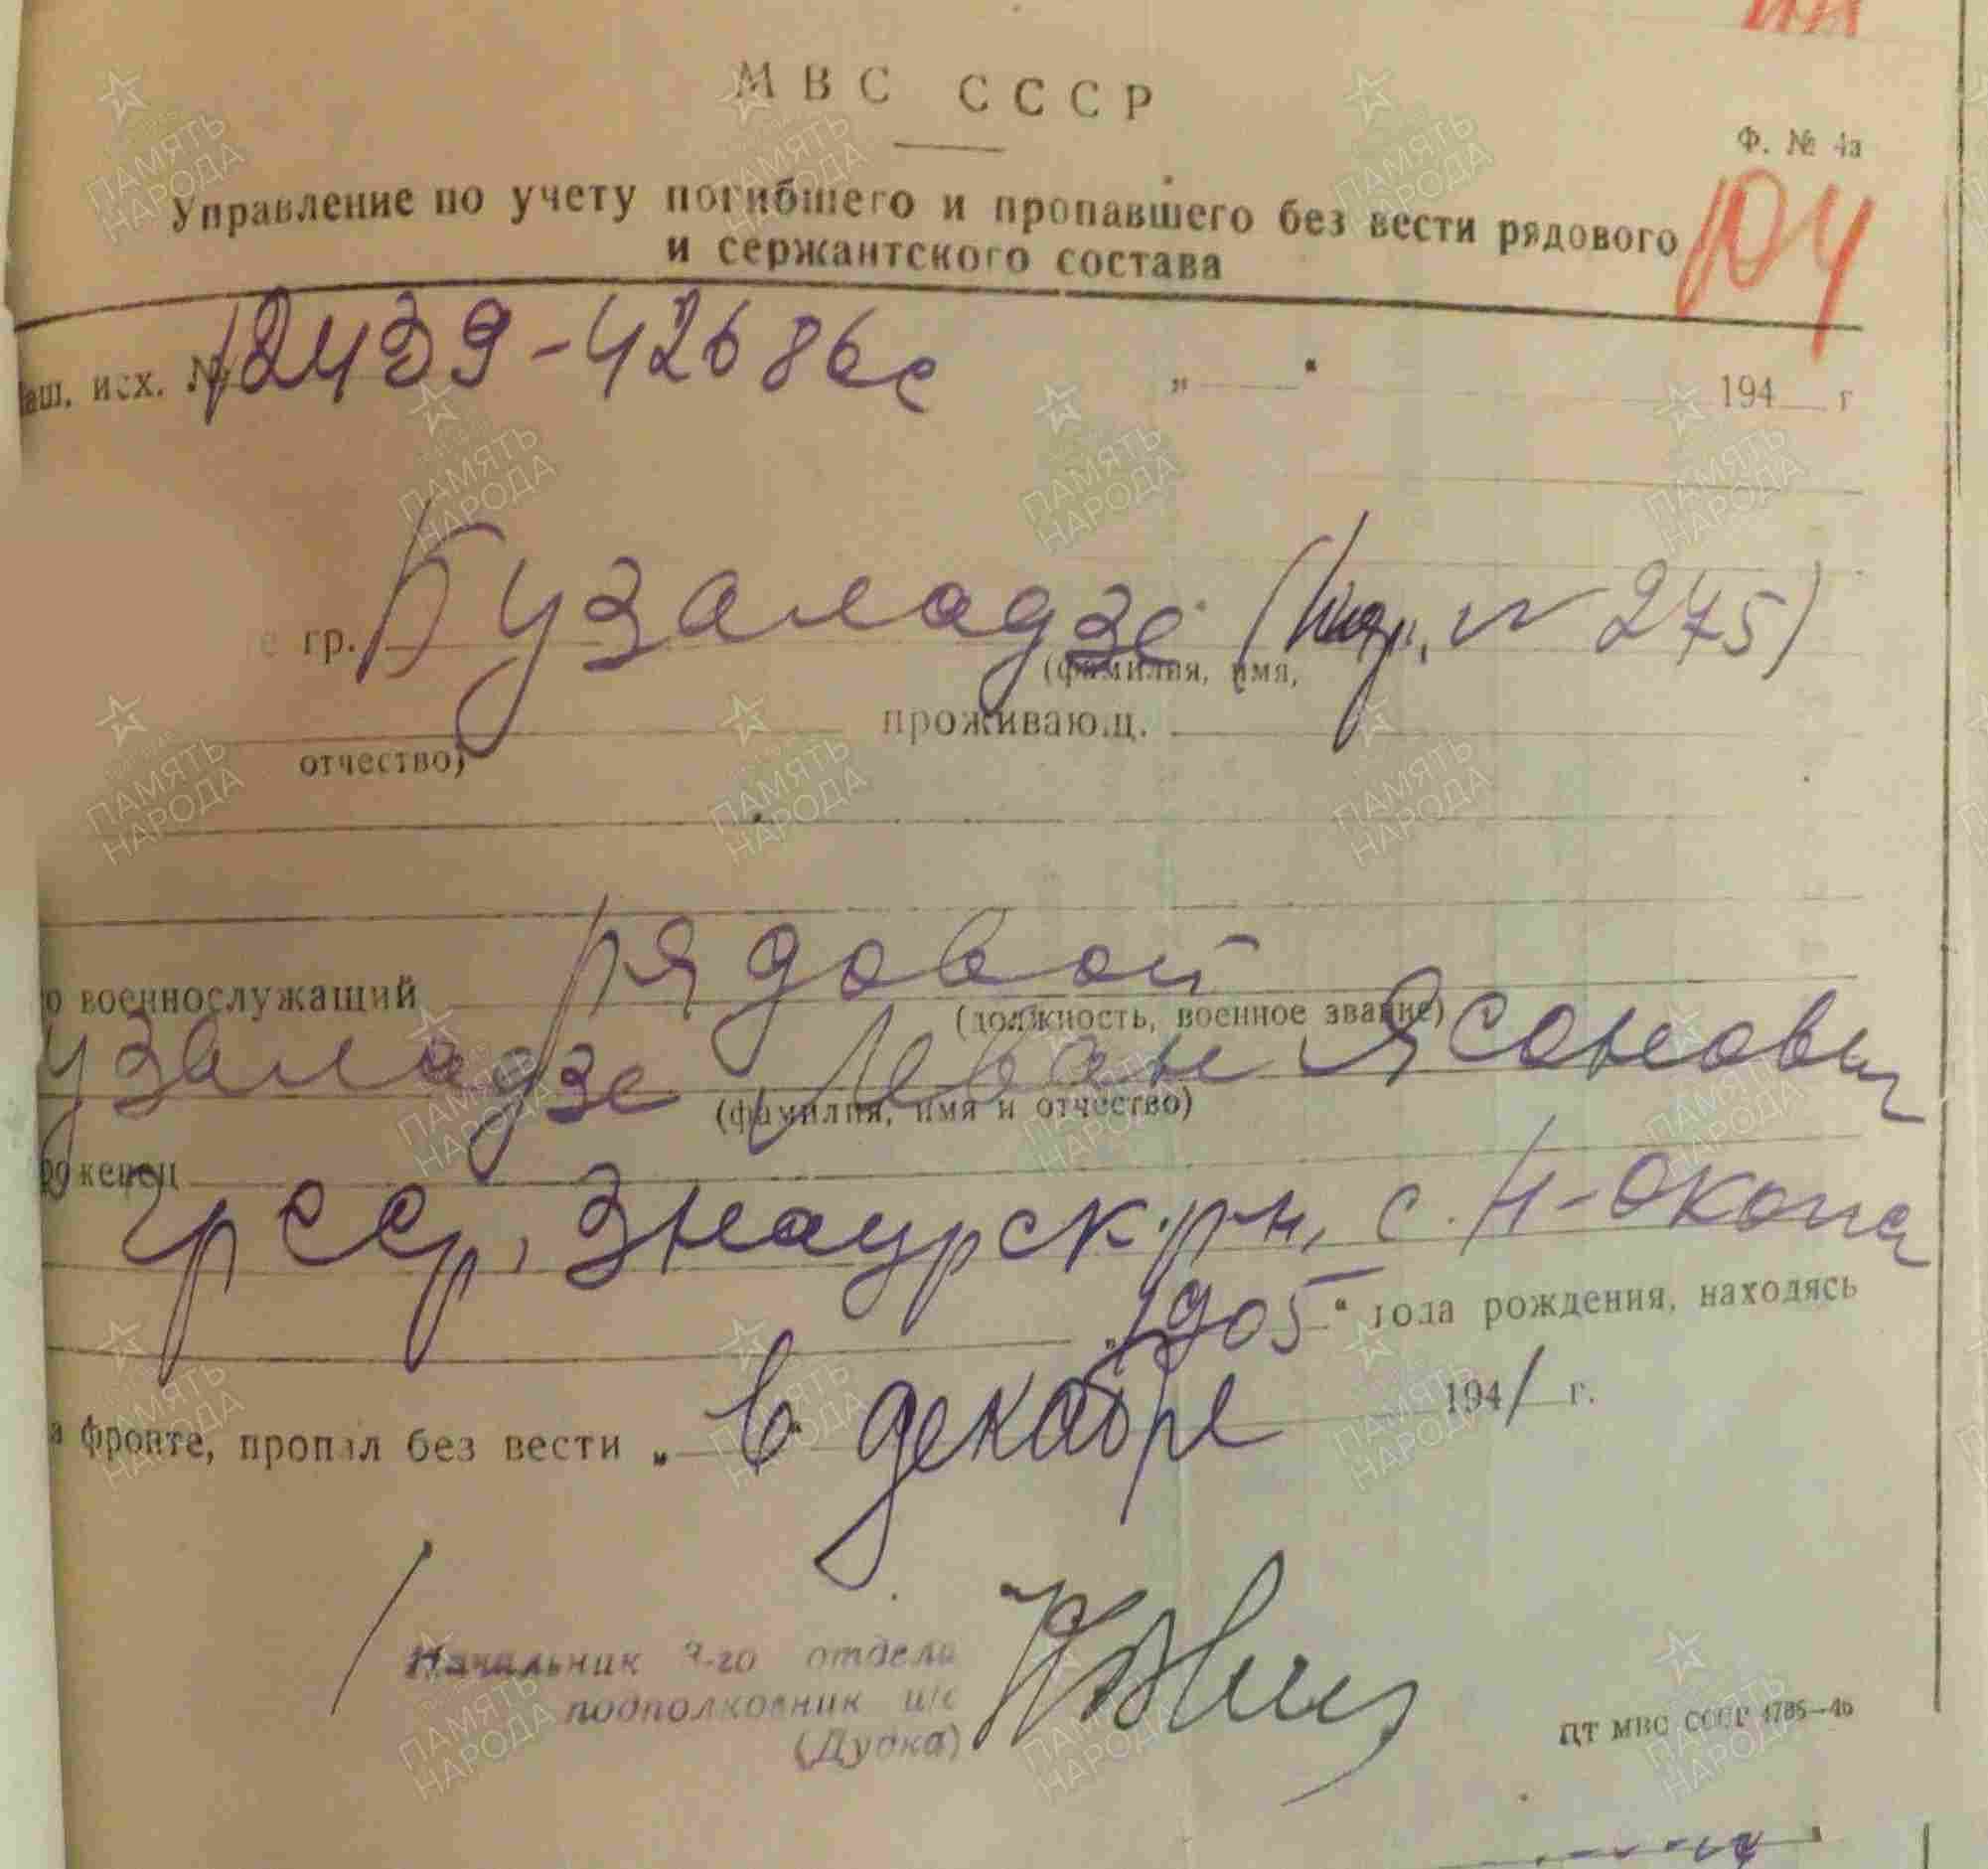 МВС СССР
Ф. № 4а
Управление по учету погибшего и пропавшего без вести рядового
104
и сержантского состава
аш. исх. № 12439-42686с
„ " 194 г
е гр. Бузаладзе ( № 275)
(фамилия, имя,
отчество) проживаю.ц.
рядовой
о военнослужащий
(должность, военное звание)
узаладзе Леван Ясонович
(фамилия, имя и отчество)
роженец
Гр ССр, Знаурск. р-н, с. Н-Окона
„1905" года рождения, находясь
а фронте, пропал без вести „ в декабре 1941 г.
Начальник 3-го отдела
подполковник и/с
(Дудка)
ЦТ МВС СССР 4785—46
ПАМЯТЬ НАРОДА